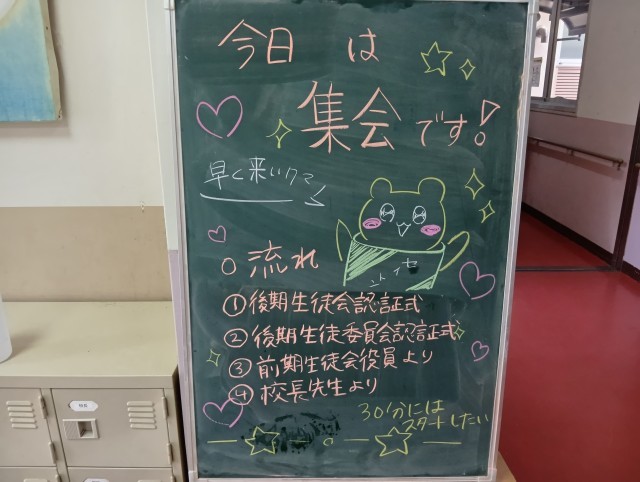 今日は
集会です!
早く来いクマ
○ 流れ
①後期生徒会認証式
②後期生徒委員会認証式
③前期生徒会役員より
④校長先生より
30分には
スタートしたい